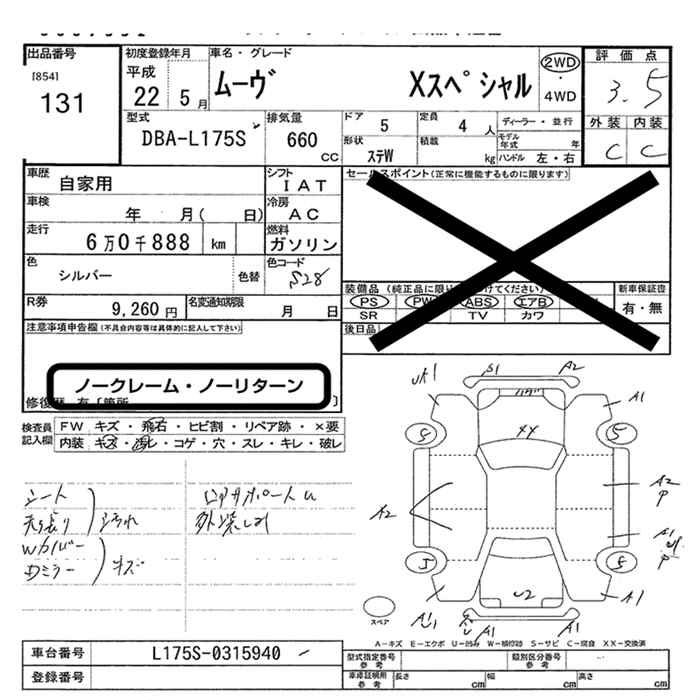 出品番号
[854]
131
初度登録年月
平成
22 5月
車名・グレード
ムーヴ Xスペシャル
2WD
・
4WD
評価点
3.5
外装 内装
C C
型式
DBA-L175S
排気量
660 CC
ドア 5
定員 4 人
ディーラー・並行
モデル年式 年
形状 ステW
積載 kg
ハンドル 左・右
車歴 自家用
シフト IAT
車検 年 月( 日)
冷房 AC
走行 6万0千888 km
燃料 ガソリン
色 シルバー 色替
色コード S28
R券 9,260円
名変通知期限 月 日
セールスポイント(正常に機能するものに限ります)
装備品
PS PW ABS エアB
SR TV カワ
新車保証書
有・無
後日品
注意事項申告欄(不具合内容等は具体的に記入して下さい)
ノークレーム・ノーリターン
検査員記入欄
FW キズ・飛石・ヒビ割・リペア跡・×要
内装 キズ・汚レ・コゲ・穴・スレ・キレ・破レ
シート
天張り
汚れ
Wカバー
Dミラー
キズ
S1 A2
A1
XX
S S
A2
A2
P
A1
P
S S
U2
A1
A1
A1
スペア
A-キズ E-エクボ U-凹み W-補修跡 S-サビ C-腐食 XX-交換済
車台番号 L175S-0315940
登録番号
型式指定番号 参考
類別区分番号 参考
車庫証明用 参考
長さ cm 幅 cm 高さ cm